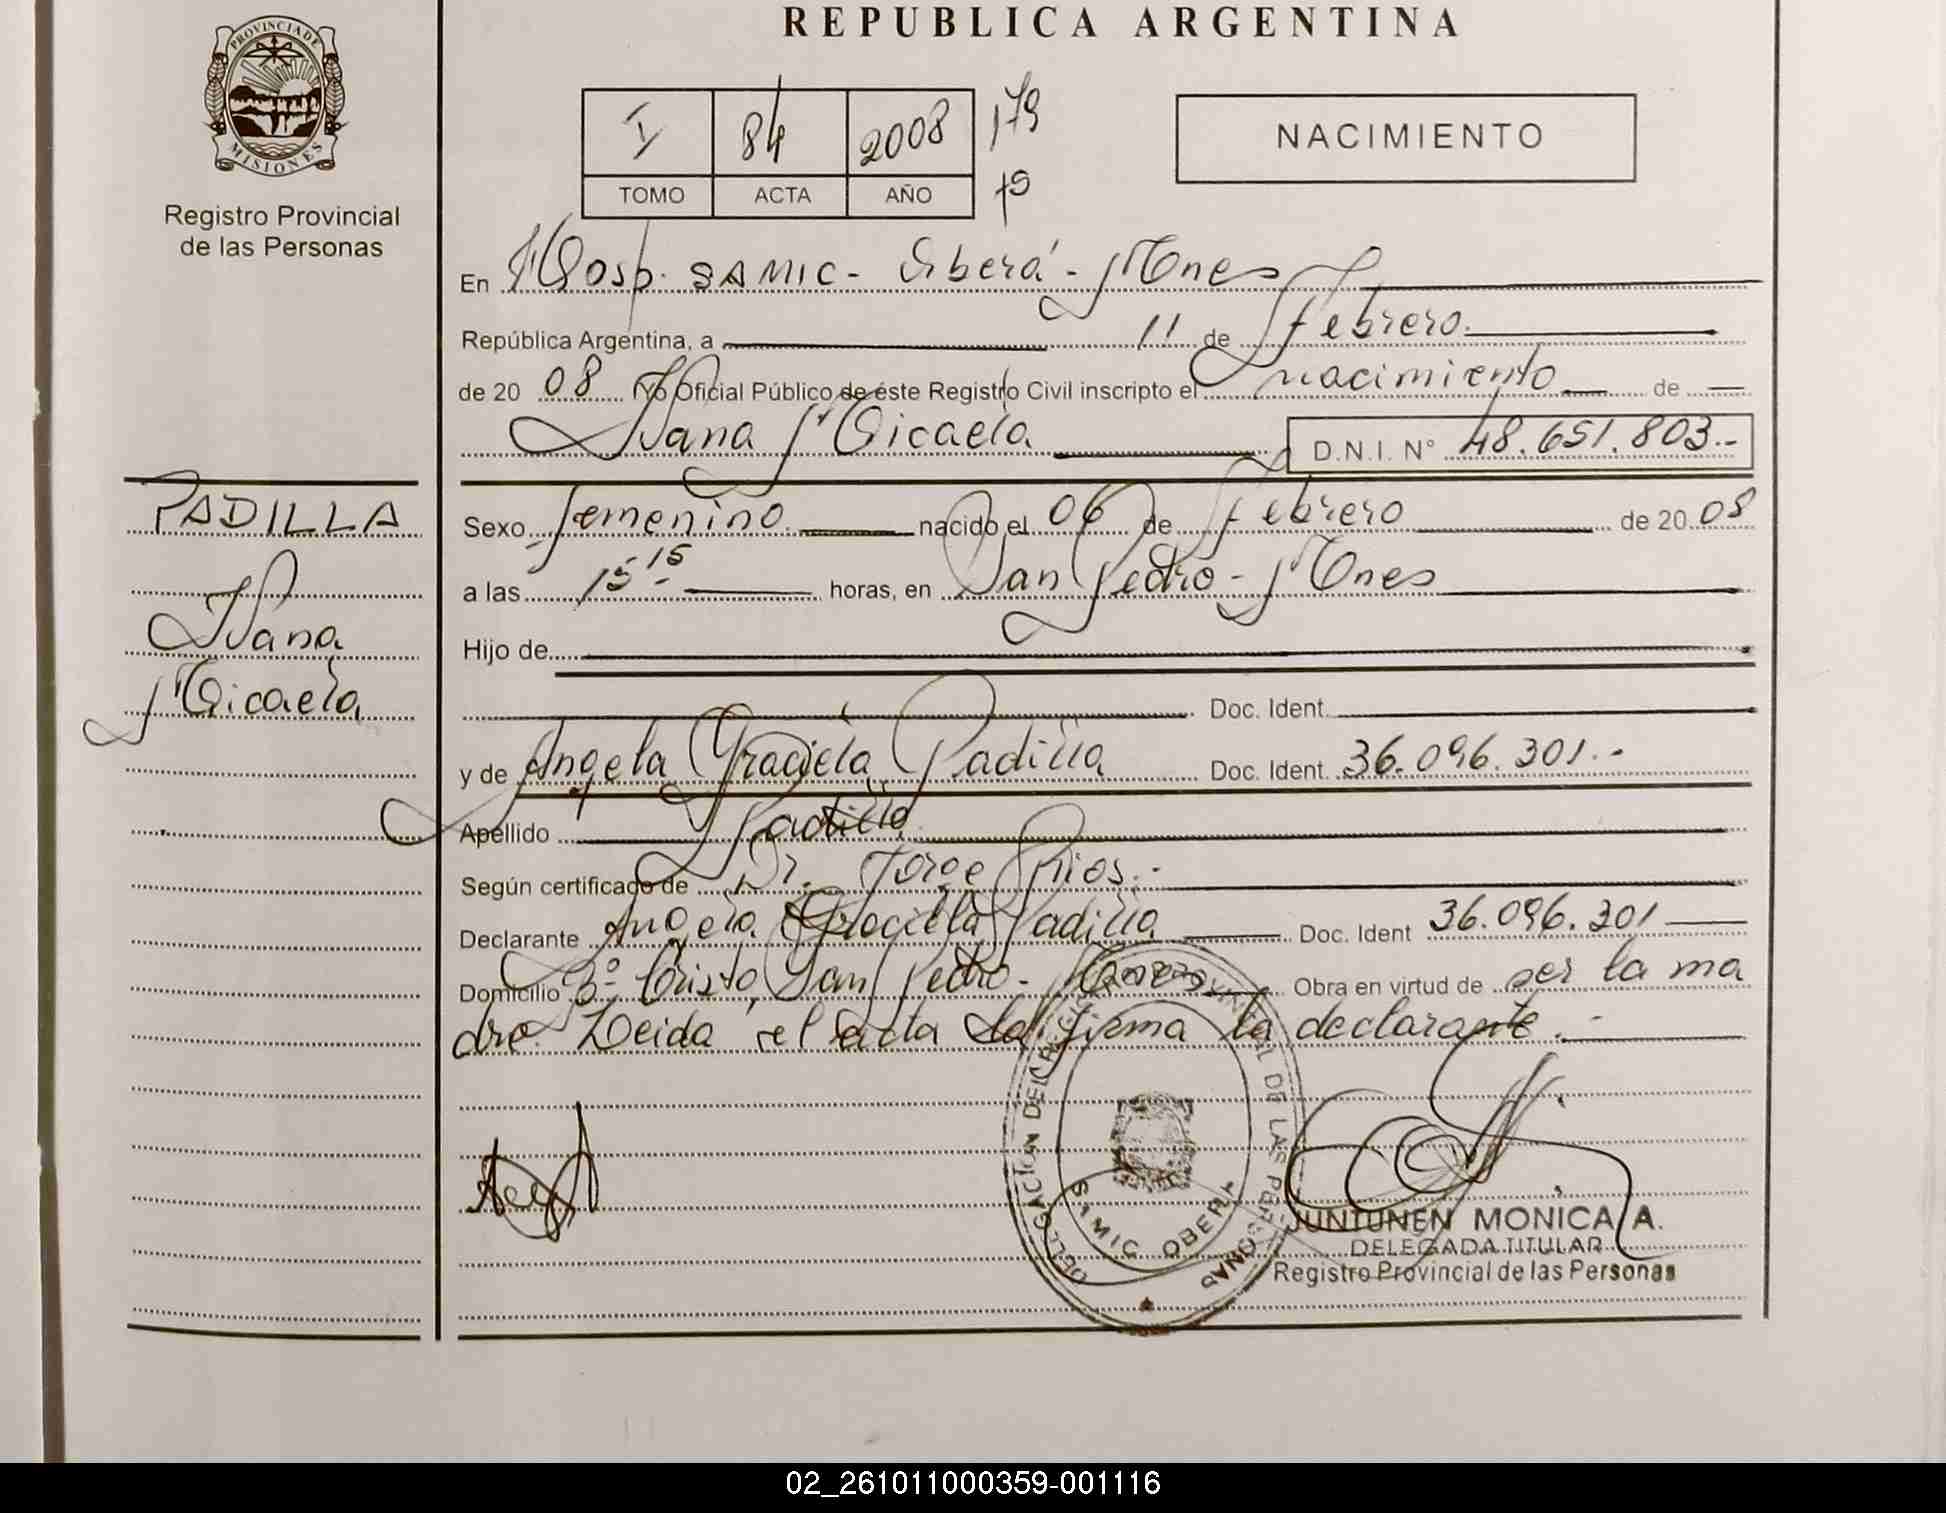 REPUBLICA ARGENTINA
PROVINCIA DE
MISIONES
Registro Provincial
de las Personas
I 84 2008 179
TOMO ACTA AÑO
NACIMIENTO
En Hosp. SAMIC - Oberá - Mnes
República Argentina, a 11 de Febrero.
de 20 08 Yo Oficial Público de éste Registro Civil inscripto el nacimiento de
Ivana Micaela D.N.I. N° 48.651.803.-
PADILLA
Ivana
Micaela
Sexo femenino nacido el 06 de Febrero de 20 08
a las 15 15 horas, en San Pedro - Mnes
Hijo de
Doc. Ident.
y de Angela Graciela Padilla Doc. Ident. 36.096.301.-
Apellido Padilla
Según certificado de Dr. Jorge Rios.-
Declarante Angela Graciela Padilla Doc. Ident 36.096.301
Domicilio B° Cristo, San Pedro - Mnes Obra en virtud de ser la ma
dre. Leida el acta la firma la declarante.-
DELEGACION DEL REGISTRO PROVINCIAL DE LAS PERSONAS
SAMIC OBERA
JUNTUNEN MONICA A.
DELEGADA TITULAR
Registro Provincial de las Personas
02_261011000359-001116